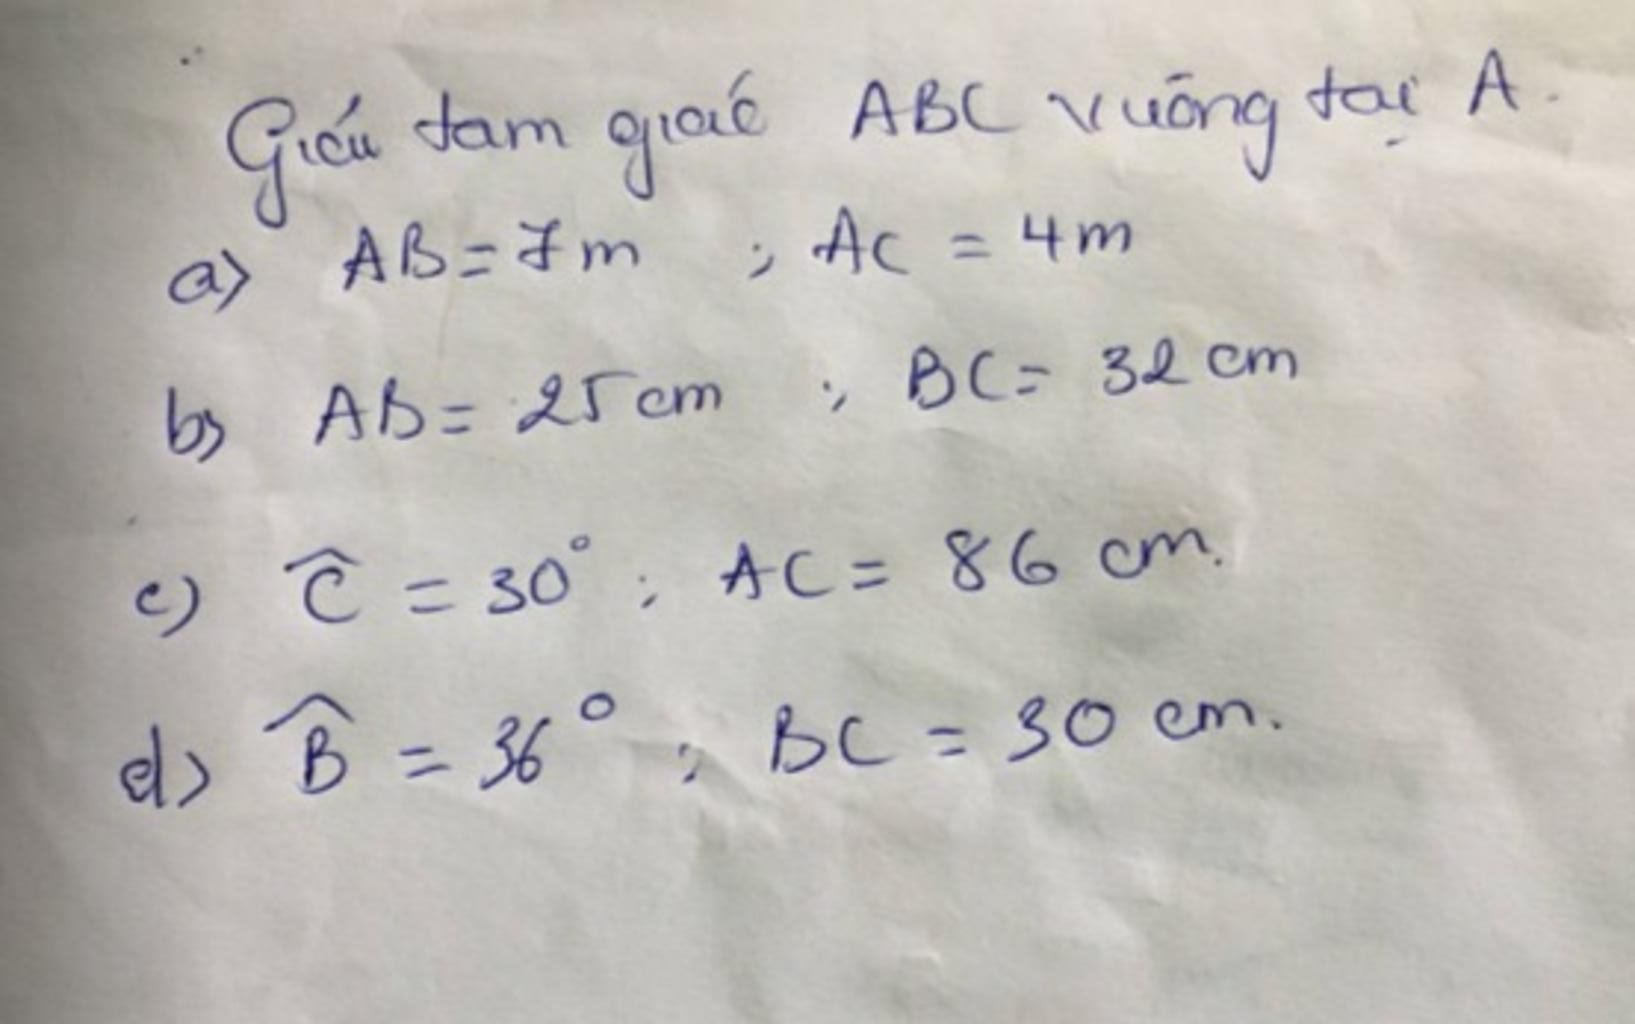 Giải tam giác ABC vuông tại A.
a) AB = 7m ; AC = 4m
b) AB = 25cm ; BC = 32 cm
c) Ĉ = 30° ; AC = 86 cm.
d) B̂ = 36° ; BC = 30 cm.